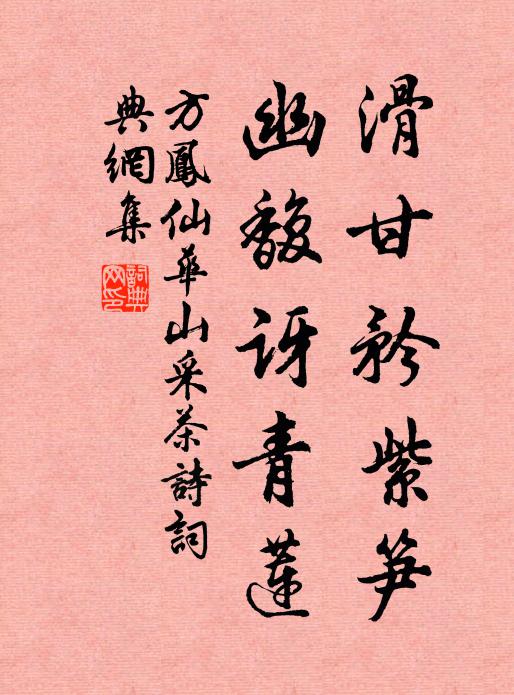 滑甘矜紫笋
幽馥讶青蓮
方鳳仙華山采茶詩詞
典網集
詞典網印